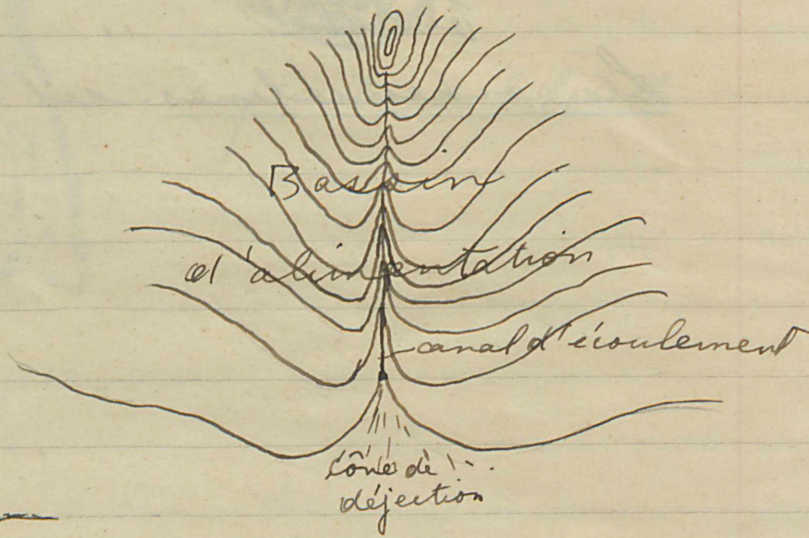 Bassin
d'alimentation
canal d'écoulement
Cône de
déjection